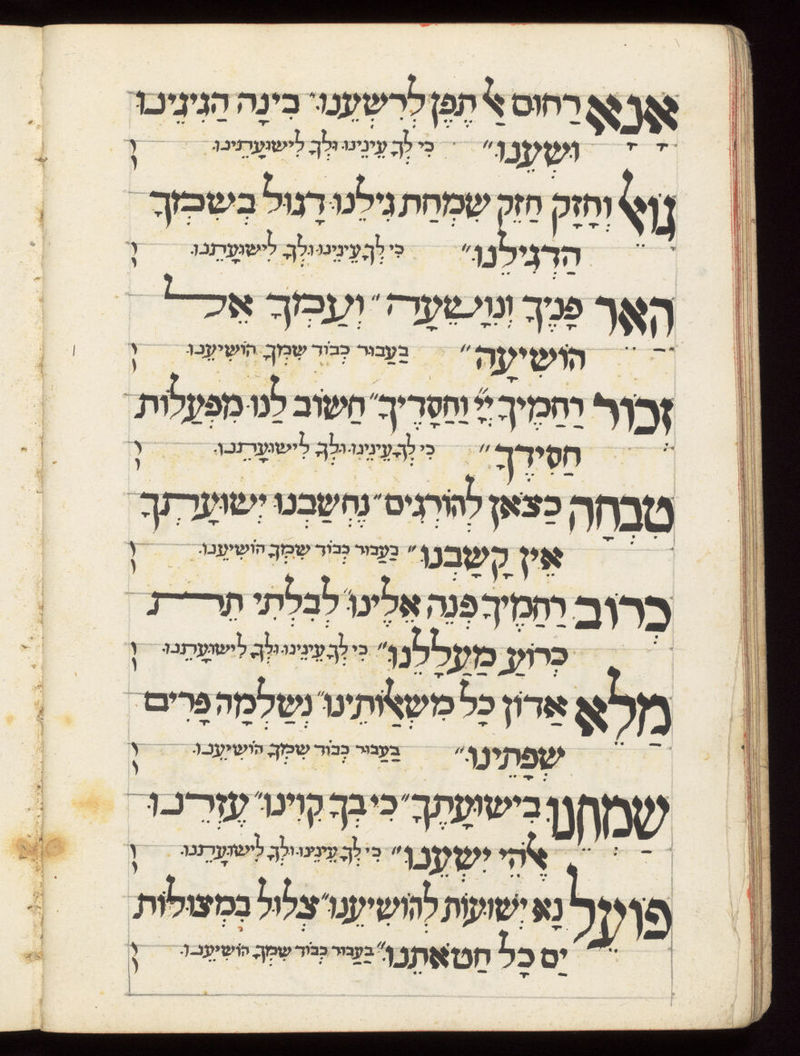 אָנָא רַחוּם אַל תֶּפֶן לְרִשְׁעֵנוּ׳ בִּינָה הֲגִיגֵינוּ
וְשַׁוְעֵנוּ״ כִּי לְךָ עֵינֵינוּ וּלְךָ לִישׁוּעָתֵינוּ׃
גּוֹאֵל וְחָזָק חַזֵּק שִׂמְחַת גִּילֵנוּ׳ דָּגוּל בְּשִׁמְךָ
הַדְגִּילֵנוּ״ כִּי לְךָ עֵינֵינוּ וּלְךָ לִישׁוּעָתֵנוּ׃
הָאֵר פָּנֶיךָ וְנִוָּשֵׁעָה״ וְעַמְּךָ אֵל
הוֹשִׁיעָה״ בַּעֲבוּר כְּבוֹד שִׁמְךָ הוֹשִׁיעֵנוּ׃
זְכוֹר רַחֲמֶיךָ יְיָ וַחֲסָדֶיךָ״ חֲשׁוֹב לָנוּ מִפְעֲלוֹת
חֲסִידֶךָ״ כִּי לְךָ עֵינֵינוּ וּלְךָ לִישׁוּעָתֵנוּ׃
טִבְחָה כַּצֹּאן לְהוֹרְגִים״ נֶחְשַׁבְנוּ יְשׁוּעָתְךָ
אֵין קָשָׁבְנוּ״ בַּעֲבוּר כְּבוֹד שִׁמְךָ הוֹשִׁיעֵנוּ׃
כְּרוֹב רַחֲמֶיךָ פְּנֵה אֵלֵינוּ״ לְבִלְתִּי תֵּרֶת
כְּרוֹעַ מַעֲלָלֵנוּ״ כִּי לְךָ עֵינֵינוּ וּלְךָ לִישׁוּעָתֵנוּ׃
מַלֵּא אֲדוֹן כָּל מִשְׁאֲלוֹתֵינוּ״ נְשַׁלְּמָה פָּרִים
שְׂפָתֵינוּ״ בַּעֲבוּר כְּבוֹד שִׁמְךָ הוֹשִׁיעֵנוּ׃
שַׂמְּחֵנוּ בִּישׁוּעָתֶךָ״ כִּי בְךָ קִוִּינוּ״ עֶזְרֵנוּ
אֱלֹהֵי יִשְׁעֵנוּ״ כִּי לְךָ עֵינֵינוּ וּלְךָ לִישׁוּעָתֵנוּ׃
פּוֹעֵל נָא יְשׁוּעוֹת לְהוֹשִׁיעֵנוּ״ צְלוֹל בִּמְצוּלוֹת
יַם כָּל חַטֹּאתֵנוּ״ בַּעֲבוּר כְּבוֹד שִׁמְךָ הוֹשִׁיעֵנוּ׃